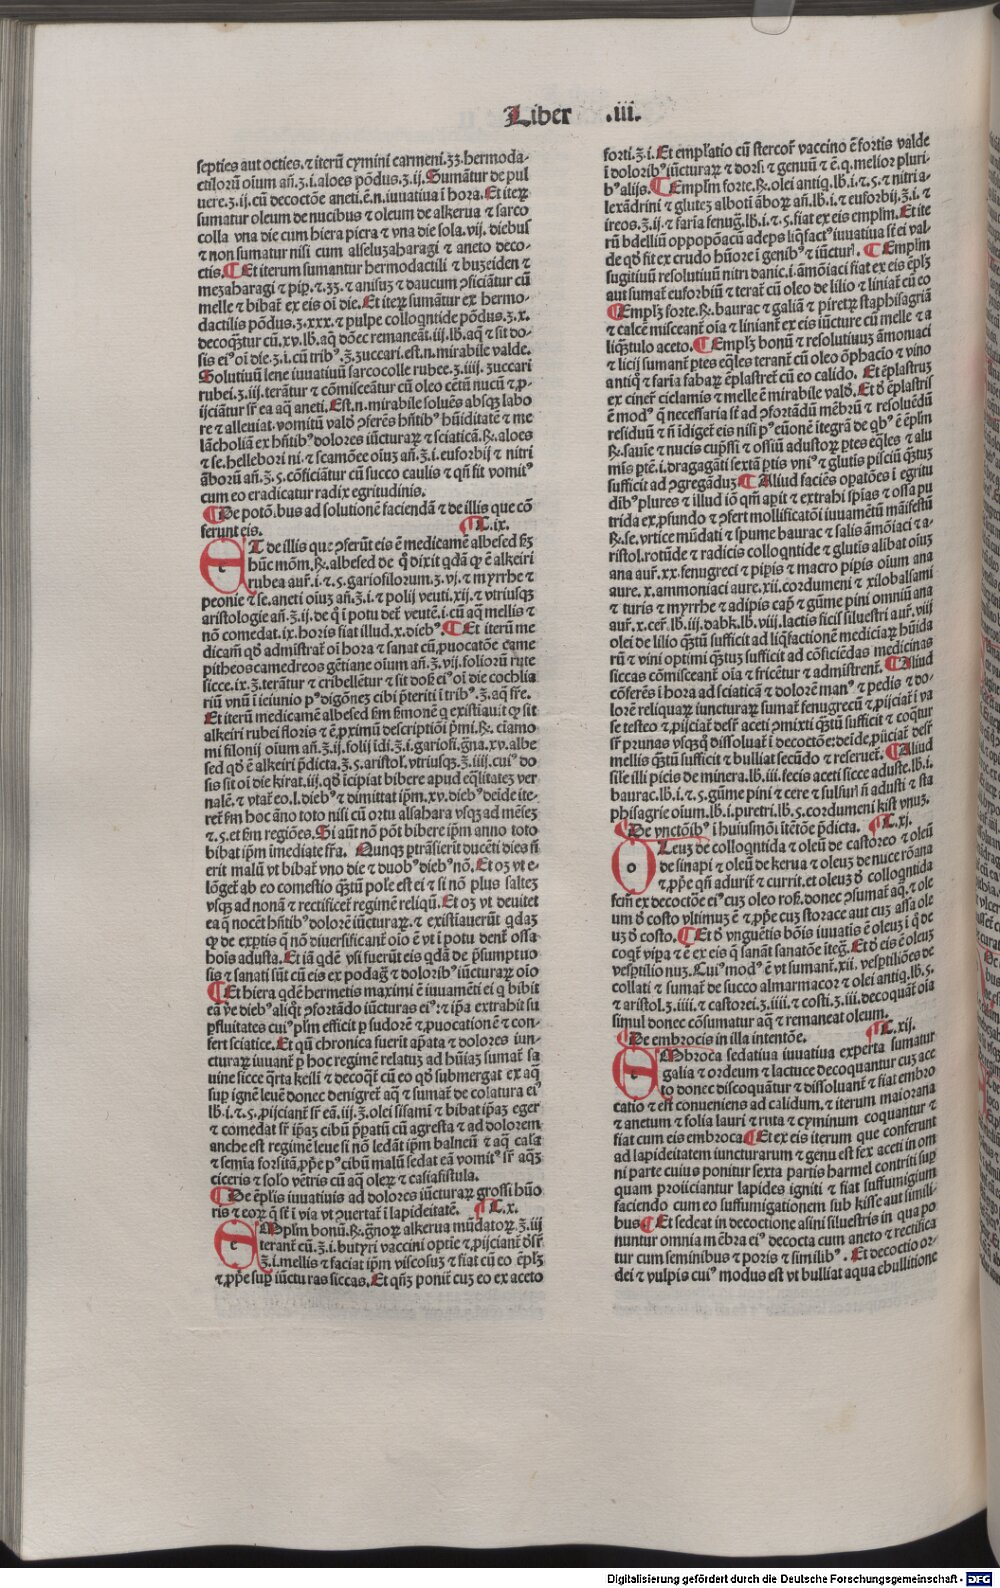 Liber .iii.
septies aut octies. ⁊ iterū cymini carmeni. ʒʒ. hermoda-
ctilorū oīum añ. ʒ. i. aloes pōdus. ʒ. ij. Sumātur de pul
uere. ʒ. ij. cū decoctōe aneti. ē. n. iuuatiua ī hora. Et iteꝝ
sumatur oleum de nucibus ⁊ oleum de alkerua ⁊ sarco
colla vna die cum hiera picra ⁊ vna die sola. vij. diebus
⁊ non sumatur nisi cum alseluzaharagi ⁊ aneto deco-
ctis. Et iterum sumantur hermodactili ⁊ buzeiden ⁊
mezaharagi ⁊ pip. ⁊. ʒʒ. ⁊ anisuz ⁊ daucum ꝯficiātur cū
melle ⁊ bibat ex eis oī die. Et iteꝝ sumātur ex hermo-
dactilis pōdus. ʒ. xxx. ⁊ pulpe colloqntide pōdus. ʒ. x.
decoqztur cū. xv. lb. aq̄ dōec remaneāt. iij. lb. aq̄ ⁊ sit do-
sis eiꝰ oī die. ʒ. i. cū tribꝰ. ʒ. zuccari. est. n. mirabile valde.
Solutiuū lene iuuatiuū sarcocolle rubee. ʒ. iiij. zuccari
rubei. ʒ. iij. terātur ⁊ cōmisceātur cū oleo cētū nucū ⁊ ꝓ-
ijciātur sr̄ ea aq̄ aneti. Est. n. mirabile soluēs absqz labo
re ⁊ alleuiat. vomitū valdȩ ꝯferēs hn̄tibꝰ hūiditatē ⁊ me
lācholiā ex hn̄tibꝰ dolores iūcturaꝝ ⁊ sciaticā. ℞. aloes
⁊ se. hellebori ni. ⁊ scamōee oīuz añ. ʒ. i. euforbij ⁊ nitri
āborū añ. ʒ. s. cōficiātur cū succo caulis ⁊ qn̄ fit vomitꝰ
cum eo eradicatur radix egritudinis.
De potō.bus ad solutionē faciendā ⁊ de illis que cō
ferunt eis. C. ix.
ET de illis que ꝯferūt eis ē medicamē albesed
hūc mōm. ℞. albesed de q̄ dixit qdā ꝙ ē alkeiri
rubea aur̄. i. ⁊. s. gariofilorum. ʒ. vj. ⁊ myrrhe ⁊
peonie ⁊ se. aneti oīuz añ. ʒ. i. ⁊ polij veuti. xij. ⁊ vtriusqz
aristologie añ. ʒ. ij. de q̄ ī potu det̄ veutē. i. cū aq̄ mellis ⁊
nō comedat. ix. horis fiat illud. x. diebꝰ. Et iterū me
dicam̄ qd̄ admistrat̄ oī hora ⁊ sanat cū ꝓuocatōe came
pitheos camedreos gētiane oīum añ. ʒ. vij. foliorū rute
sicce. ix. ʒ. terātur ⁊ cribellētur ⁊ sit dosꝭ eiꝰ oī die cochlia
riū vnū ī ieiunio pꝰ digōnez cibi p̄teriti ī tribꝰ. ʒ. aq̄ fr̄e.
Et iterū medicamē albesed fm̄ fmonē q̄ existiauit ꝙ sit
alkeiri rubei floris ⁊ ē ꝓximū descriptiōi p̄mi. ℞. ciamo
mi filonij oīum añ. ʒ. ij. folij īdi. ʒ. i. gariofi. gn̄a. xv. albe
sed qd̄ ē alkeiri p̄dicta. ʒ. s. aristol. vtriusqz. ʒ. iiij. cuiꝰ do
sis sit oī die kirat. iij. qd̄ īcipiat bibere apud eq̄litatez ver
nalē. ⁊ vtat̄ eo. l. diebꝰ ⁊ dimittat ip̄m. xv. diebꝰ deide ite-
ret̄ fm̄ hoc āno toto nisi cū ortu alsahara vsqz ad mēsez
⁊. s. et fm̄ regiōes. Si aūt nō pōt bibere ip̄m anno toto
bibat ip̄m īmediate fra. Nunqz ptrāsierit ducēti dies si
erit malū vt bibat̄ vno die ⁊ duobꝰ diebꝰ nō. Et oꝫ vt e-
lōget̄ ab eo comestio qz̄tū pole est ei ⁊ si nō plus saltez
vsqz ad nonā ⁊ rectificet̄ regimē reliqū. Et oꝫ vt deuitet
ea q̄ nocēt hn̄tibꝰ dolorē iūcturaꝝ. ⁊ existiauerūt qdaz
ꝙ de exptis q̄ nō diuersificant̄ oīo ē vt ī potu dent̄ ossa
hoīs adusta. Et iā qdē vsi fuerūt eis qdā de p̄sumptuo
sis ⁊ sanati sūt cū eis ex podagra ⁊ doloribꝰ iūcturaꝝ oīo
Et hiera qdē hermetis maximi ē iuuamēti ei q̄ bibit
eā p̄ dieb̄ aliq̄t ꝯfortādo iūcturas eiꝰ: ⁊ ipa extrahit su
pfluitates cuiꝰ plm̄ efficit p sudorē ⁊ ꝓuocationē ⁊ con-
fert sciatice. Et qn̄ chronica fuerit apata ⁊ dolores iun-
cturaꝝ iuuant̄ p hoc regimē relatuz ad hūiaz sumat̄ sa
uine sicce q̄rta keili ⁊ decoqt̄ cū eo qd̄ submergat ex aq̄
sup ignē leuē donec denigret̄ aq̄ ⁊ sumat̄ de colatura eiꝰ
lb. i. ⁊. s. ꝓijciant̄ sr̄ eā. iij. ʒ. olei sisami ⁊ bibat ipaz eger
⁊ comedat sr̄ ipaz cibū p̄patū cū agresta ⁊ ad dolorem
anche est regimē leue si nō ledāt ip̄m balneū ⁊ aq̄ cala
⁊ semīa forsitā ꝓpe pꝰ cibū malū sedat eā vomitꝰ sr̄ aqz
ciceris ⁊ solo vētris cū aq̄ oleꝝ ⁊ casiafistula.
De ēplis iuuatiuis ad dolores iūcturaꝝ grossi hūo
ris ⁊ eoꝝ q̄ st̄ ī via vt ꝯuertat̄ ī lapideitatē. C. x.
EMplm̄ bonū. ℞. gn̄oꝝ alkerua mūdatoꝝ. ʒ. iij
terant̄ cū. ʒ. i. butyri vaccini optie ⁊ ꝓijciant̄ dsr̄
ʒ. i. mellis ⁊ faciat ip̄m viscosuz ⁊ fiat cū eo ēplz
⁊ ꝓpe sup iūcturas siccas. Et qn̄z ponit̄ cuz eo ex aceto
forti. ʒ. i. Et emplatio cū stercor̄ vaccino ē fortis valde
ī doloribꝰ iūcturaꝝ ⁊ dorsi ⁊ genuū ⁊ ē. q. melior pluri-
bꝰ alijs. Emplm̄ forte. ℞. olei antiq. lb. i. ⁊. s. ⁊ nitri a-
lexādrini ⁊ glutez alboti āboꝝ añ. lb. i. ⁊ euforbij. ʒ. i. ⁊
ireos. ʒ. ij. ⁊ faria fenuḡ. lb. i. ⁊. s. fiat ex eis emplm̄. Et ite
rū bdelliū oppopōacū adeps liqfactꝰ iuuatiua st̄ ei val-
de qd̄ fit ex crudo hūore ī genibꝰ ⁊ iūctur̄. Emplm̄
sugitiuū resolutiuū nitri danic. i. āmōiaci fiat ex eis ēplz
aut sumat̄ euforbiū ⁊ terat̄ cū oleo de lilio ⁊ liniat̄ cū eo
Emplz forte. ℞. baurac ⁊ galiā ⁊ piretꝝ staphisagriā
⁊ calcē misceant̄ oīa ⁊ liniant̄ ex eis iūcture cū melle ⁊ a
liqz̄tulo aceto. Emplz bonū ⁊ resolutiuuz āmoniaci
⁊ licij sumant̄ ptes eq̄les terant̄ cū oleo ōphacio ⁊ vino
antiq ⁊ faria fabaꝝ ēplastret̄ cū eo calido. Et ēplastruz
ex ciner̄ ciclamis ⁊ melle ē mirabile valdȩ. Et d̄ ēplastris
ē modꝰ q̄ necessaria st̄ ad ꝯfortādū mēbrū ⁊ resoluēdū
residuū ⁊ n̄ idiget̄ eis nisi pꝰ euōnē ītegrā de qbꝰ ē ēplm̄
℞. sauīe ⁊ nucis cupssi ⁊ ossiū adustoꝝ ptes eq̄les ⁊ alu
mīs ptē. i. dragagāti sextā ptis vniꝰ ⁊ glutis pisciū qz̄tuz
sufficit ad ꝯgregāduz. Aliud faciēs opatōes ī egritu
dibꝰ plures ⁊ illud iō qm̄ apit ⁊ extrahi spīas ⁊ ossa pu
trida ex ꝓfundo ⁊ ꝯfert mollificatōi iuuamētū māifestū
℞. se. vrtice mūdati ⁊ spume baurac ⁊ salis āmōiaci ⁊ a-
ristol. rotūde ⁊ radicis colloqntide ⁊ glutis alibat oīuz
ana aur̄. xx. fenugreci ⁊ pipis ⁊ macro pipis oīum ana
aure. x. ammoniaci aure. xii. cordumeni ⁊ xilobalsami
⁊ turis ⁊ myrrhe ⁊ adipis cap̄ ⁊ gūme pini omniū ana
aur̄. x. cer̄. lb. iij. dabk. lb. viij. lactis ficiſ siluestri aur̄. viij
olei de lilio qz̄tū sufficit ad liqfactionē mediciaꝝ hūida
rū ⁊ vini optimi qz̄tuz sufficit ad cōficiēdas medicinas
siccas cōmisceant̄ oīa ⁊ fricētur ⁊ admistrent̄. Aliud
cōferēs ī hora ad sciaticā ⁊ dolorē manꝰ ⁊ pedis ⁊ do-
lorē reliquaꝝ iuncturaꝝ sumat̄ fenugrecū ⁊ ꝓijciat̄ ī va
se testeo ⁊ ꝓijciat̄ desr̄ aceti ꝯmixti qz̄tū sufficit ⁊ coqtur
sr̄ prunas vsqzq̄ dissoluat̄ ī decoctōe: deide ꝓijciat̄ desr̄
mellis qz̄tū sufficit ⁊ bulliat secūdo ⁊ reseruet̄. Aliud
sile illi picis de minera. lb. iij. fecis aceti sicce aduste. lb. i.
baurac. lb. i. ⁊. s. gūme pini ⁊ cere ⁊ sulfuri n̄ adusti ⁊ sta
phisagrie oīum. lb. i. piretri. lb. s. cordumeni kist vnuz.
De vnctōibꝰ ī huiusmōi ītētōe p̄dicta. C. xj.
OLeuz de colloqntida ⁊ oleū de castoreo ⁊ oleū
de sinapi ⁊ oleū de kerua ⁊ oleuz de nuce rōana
⁊ ꝓpe qn̄ adurit̄ ⁊ currit. et oleuz d̄ colloqntida
fcm̄ ex decoctōe eiꝰ cuz oleo rosꝭ. donec ꝯsumat̄ aq̄. ⁊ ole
um d̄ costo vltimuz ē ⁊ ꝓpe cuz storace aut cuz assa ole
uz d̄ costo. Et d̄ vnguētis bōis iuuatis ē oleuz ī q̄ de
coqt̄ vipa ⁊ ē ex eis q̄ sanāt sanatōe iteḡ. Et d̄ eis ē oleuz
vesptilionuz. Cuiꝰ modꝰ ē vt sumant̄. xii. vesptiliōes de
collati ⁊ sumat̄ de succo almarmacor ⁊ olei antiq. lb. s.
⁊ aristol. ʒ. iiij. ⁊ castorei. ʒ. iiij. ⁊ costi. ʒ. iij. decoquāt̄ oīa
simul donec cōsumatur aq̄ ⁊ remaneat oleum.
De embrocis in illa intentōe. C. xij.
EMbroca sedatiua iuuatiua experta sumatur
galia ⁊ ordeum ⁊ lactuce decoquantur cuz ace
to donec discoquātur ⁊ dissoluant̄ ⁊ fiat embro
catio ⁊ est conueniens ad calidum. ⁊ iterum maiorana
⁊ anetum ⁊ folia lauri ⁊ ruta ⁊ cyminum coquantur ⁊
fiat cum eis embroca. Et ex eis iterum que conferunt
ad lapideitatem iuncturarum ⁊ genu est fex aceti in om
ni parte cuius ponitur sexta partis harmel contriti sup
quam proiiciantur lapides igniti ⁊ fiat suffumigium
faciendo cum eo suffumigationem sub kisse aut simili-
bus. Et sedeat in decoctione asini siluestris in qua po
nuntur omnia mēbra eiꝰ decocta cum aneto ⁊ rectifica
tur cum seminibus ⁊ poris ⁊ similibꝰ. Et decoctio or-
dei ⁊ vulpis cuiꝰ modus est vt bulliat aqua ebullitione
Digitalisierung gefördert durch die Deutsche Forschungsgemeinschaft - DFG